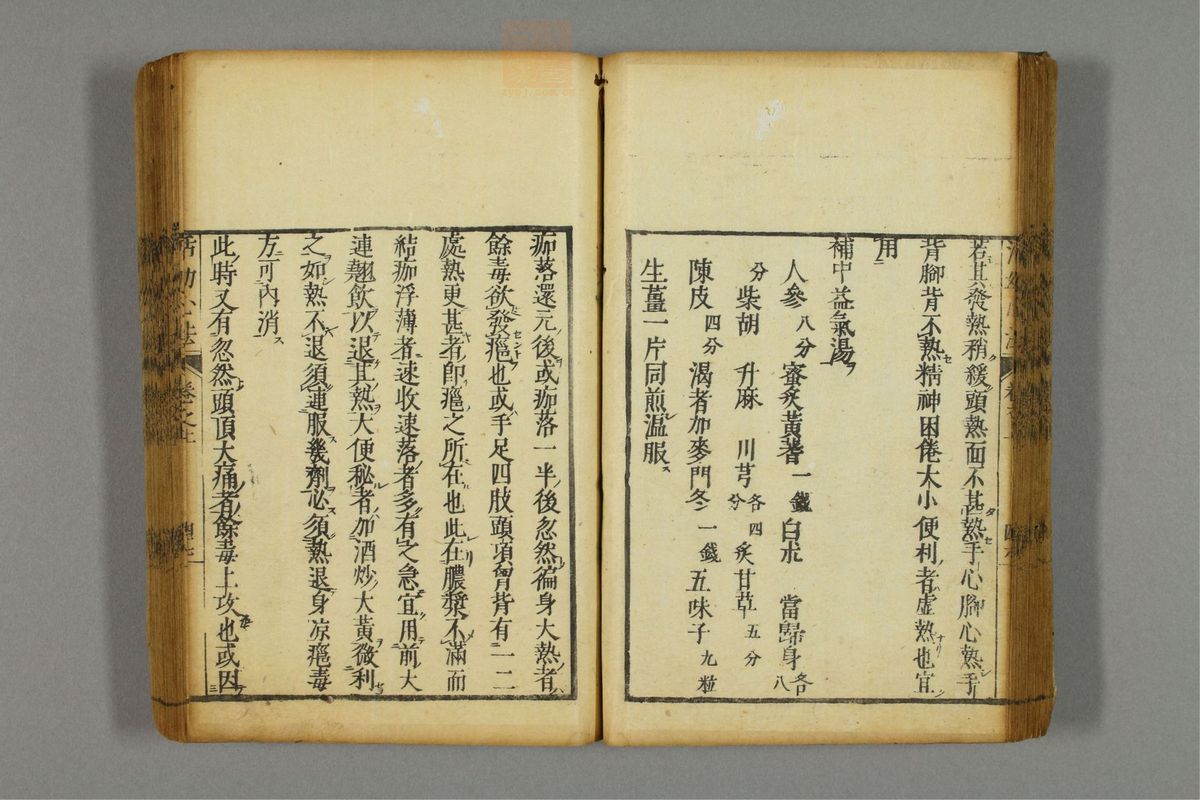 若其發熱稍緩頭熱面不甚熱手心脚心熱手
背脚背不熱精神困倦大小便利者虛熱也宜
用
補中益氣湯
人參八分蜜炙黃耆一錢白朮 當歸身各八
分柴胡 升麻 川芎各四分炙甘草五分
陳皮四分渴者加麥門冬一錢五味子九粒
生薑一片同煎温服
痂落還元後或痂落一半後忽然徧身大熱者
餘毒欲發癰也或手足四肢頭項胷背有一二
處熱更甚者卽癰之所在也此在膿漿不滿而
結痂浮薄者速收速落者多有之急宜用前大
連翹飲以退其熱大便秘者加酒炒大黃微利
之如熱不退須連服幾劑必須熱退身凉癰毒
方可內消
此時又有忽然頭頂大痛者餘毒上攻也或因
活幼心法 卷之上